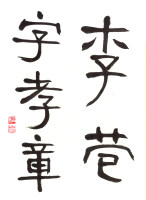 李苞
字孝章